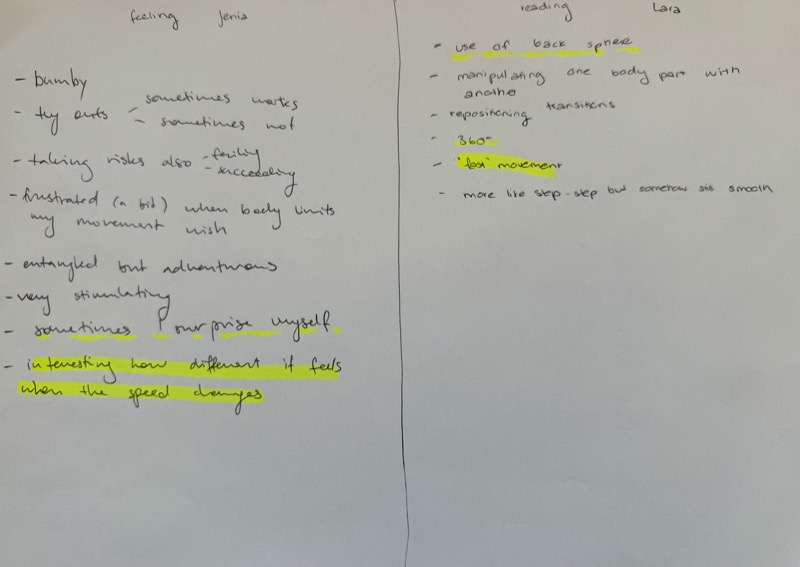 feeling Jenia
- bumby
- try outs - sometimes works
- sometimes not
- taking risks also - failing
- succeeding
- frustrated (a bit) when body limits
my movement wish
- entangled but adventurous
- very stimulating
- sometimes I surprise myself
- interesting how different it feels
when the speed changes
reading Lara
- use of back sphere
- manipulating one body part with
another
- repositioning transitions
- 360°
- "fast" movement
- more like step-step but somehow still smooth